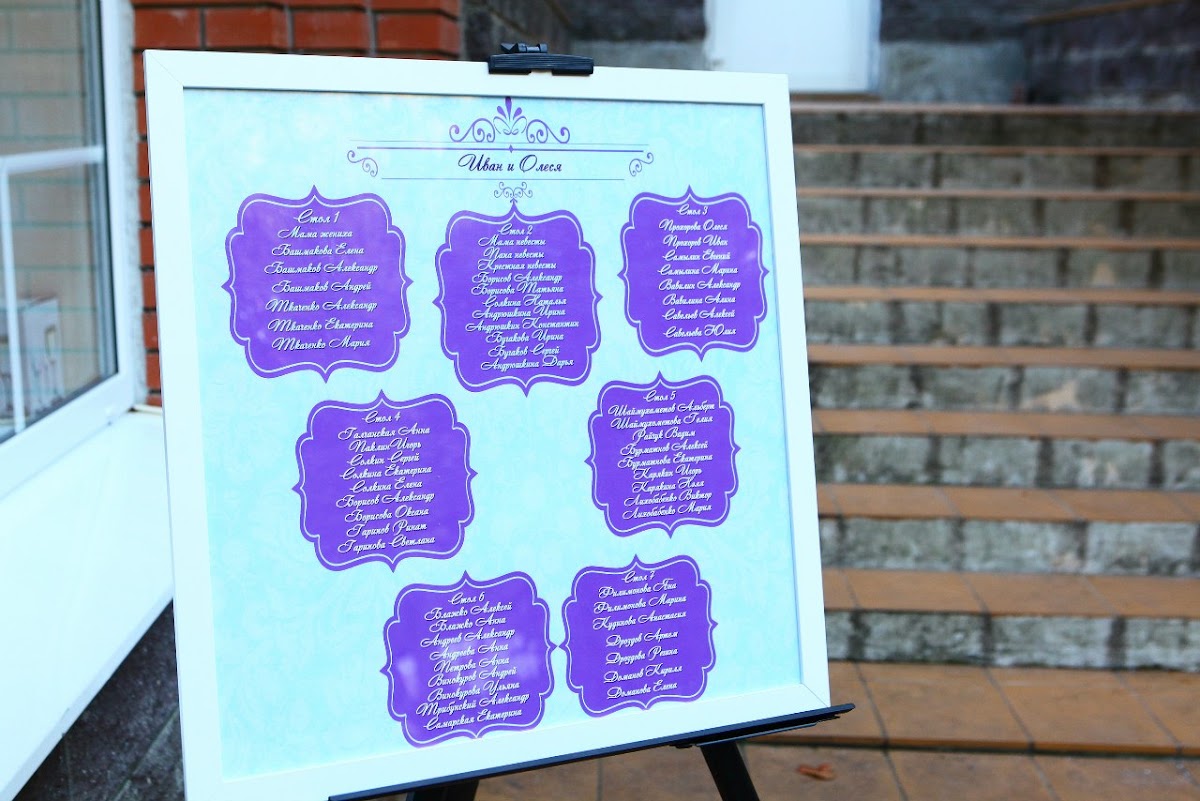 Иван и Олеся
Стол 1
Мама жениха
Башмакова Елена
Башмаков Александр
Башмаков Андрей
Ткаченко Александр
Ткаченко Екатерина
Ткаченко Мария
Стол 2
Мама невесты
Папа невесты
Крестная невесты
Борисов Александр
Борисова Татьяна
Солкина Наталья
Андрюшкина Ирина
Андрюшкин Константин
Бугакова Ирина
Бугаков Сергей
Андрюшкина Дарья
Стол 3
Прохорова Олеся
Прохоров Иван
Самылин Евгений
Самылина Марина
Вавилин Александр
Вавилина Алина
Савельев Алексей
Савельева Юлия
Стол 4
Галчанская Анна
Паклин Игорь
Солкин Сергей
Солкина Екатерина
Солкина Елена
Борисов Александр
Борисова Оксана
Гаринов Ринат
Гаринова Светлана
Стол 5
Шаймухометов Альберт
Шаймухометова Гелия
Райцук Вадим
Бурматнов Алексей
Бурматнова Екатерина
Карякин Игорь
Карякина
Лихобабенко Виктор
Лихобабенко Мария
Стол 6
Блажко Алексей
Блажко Анна
Андреев Александр
Андреева Анна
Петрова Анна
Винокуров Андрей
Винокурова Ульяна
Трибунский Александр
Самарская Екатерина
Стол 7
Филимонова Яна
Филимонова Марина
Кудинова Анастасия
Дроздов Артем
Дроздова Регина
Доманов Кирилл
Доманова Елена